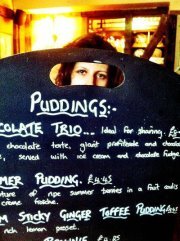 PUDDINGS:-
COLATE TRIO... Ideal for sharing. £
chocolate torte, giant profiterole and chocola
served with ice cream and chocolate fudge
MER PUDDING. £4.45
ture of ripe summer berries in a fruit coulis
crème fraiche.
M STICKY GINGER TOFFEE PUDDING
rich lemon posset.
BROWNIE £4.25